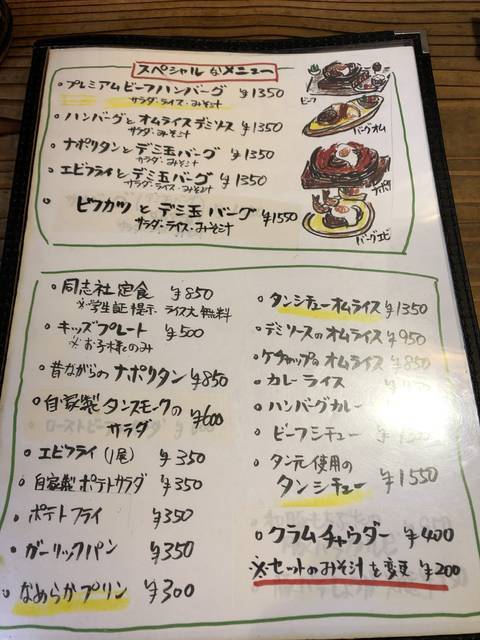 スペシャルなメニュー
。プレミアムビーフハンバーグ ¥1350
サラダ・ライス・みそ汁
。ハンバーグとオムライスデミソース ¥1350
サラダ・みそ汁
。ナポリタンとデミ玉バーグ ¥1350
サラダ・みそ汁
。エビフライとデミ玉バーグ ¥1350
サラダ・ライス・みそ汁
。ビフカツとデミ玉バーグ ¥1550
サラダ・ライス・みそ汁
ビーフ
バーグオム
ナポリ
バーグエビ
。同志社定食 ¥850
※学生証提示 ライス大無料
。キッズプレート ¥500
※お子様のみ
。昔ながらのナポリタン ¥850
。自家製タンスモークの
サラダ ¥600
。エビフライ(1尾) ¥350
。自家製ポテトサラダ ¥350
。ポテトフライ ¥350
。ガーリックパン ¥350
。なめらかプリン ¥300
。タンシチューオムライス ¥1350
。デミソースのオムライス ¥950
。ケチャップのオムライス ¥850
。カレーライス
。ハンバーグカレー
。ビーフシチュー
。タン元使用の
タンシチュー ¥1550
。クラムチャウダー ¥400
※セットのみそ汁を変更 ¥200